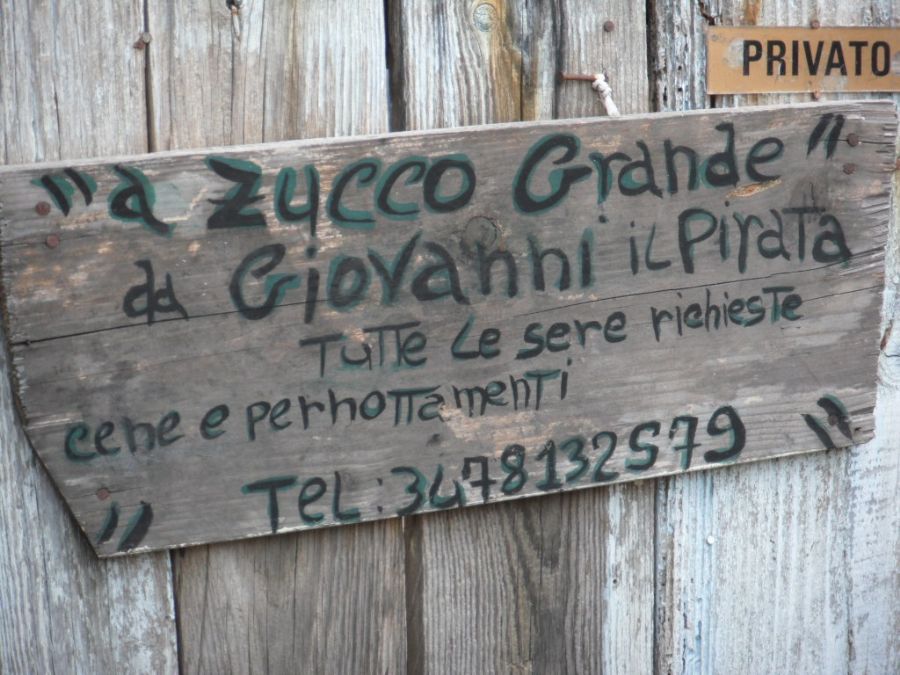 PRIVATO
"a Zucco Grande"
da Giovanni il Pirata
Tutte le sere richieste
cene e pernottamenti
Tel: 3478132579